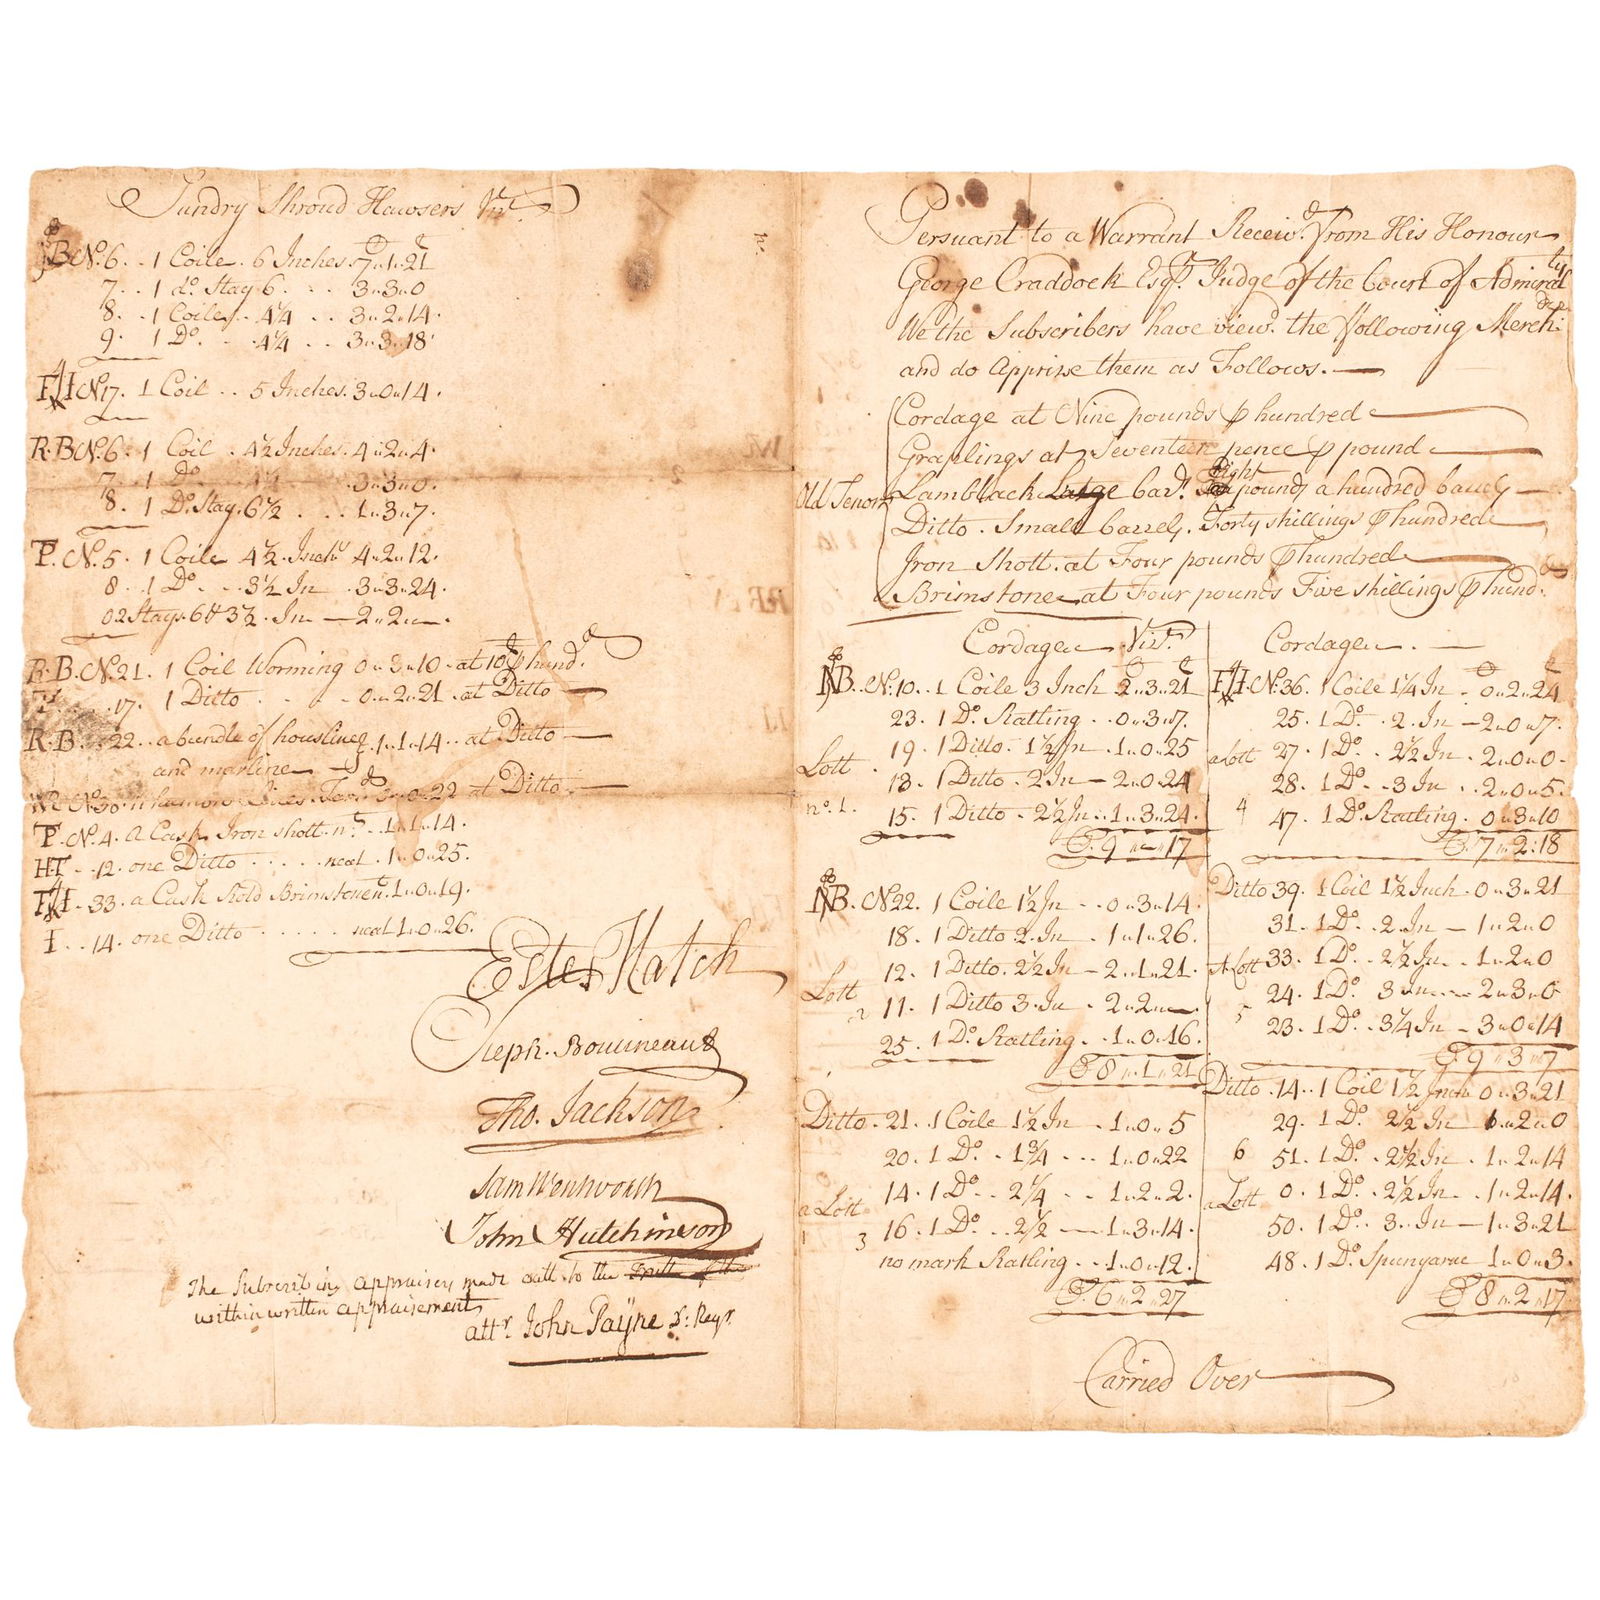 Sundry Shroud Hawsers Vizt.
B No. 6 .. 1 Coile . 6 Inches . 7 .. 1 .. 21
7 .. 1 do. Stay 6 .. 3 .. 3 .. 0
8 . 1 Coile .. 4¼ .. 3 .. 2 .. 14 .
9 . 1 Do. .. 4¼ .. 3 .. 3 .. 18
No 17 . 1 Coil .. 5 Inches . 3 .. 0 .. 14 .
R . B No. 6 . 1 Coil . 4½ Inches . 4 .. 2 .. 4 .
7 . 1 Do. 3 .. 3 .. 0 .
8 . 1 Do. Stay . 6½ .. 1 .. 3 .. 7 .
T . No. 5 . 1 Coile 4½ . Inchs 4 .. 2 .. 12 .
8 . 1 Do. .. 3½ In . 3 .. 3 .. 24 .
02 Stays . 6 & 3½ . In — 2 .. 2 .. —
R . B . No. 21 . 1 Coil Worming 0 .. 3 .. 10 . at 10£ ⅌ hund.d
17 . 1 Ditto .. 0 .. 2 .. 21 . at Ditto —
R . B .. 22 .. a bundle of houslines 1 .. 1 .. 14 .. at Ditto —
and marline
No. 30 22 at Ditto —
T . No. 4 . a Cask Iron shott . nt. .. 1 .. 1 .. 14 .
HT .. 12 . one Ditto ..... neat . 1 .. 0 .. 25 .
33 . a Cask Brimstone nt. 1 .. 0 .. 19 .
I .. 14 . one Ditto ..... neat 1 .. 0 .. 26 .
Estes Hatch
Steph. Boutineau
Tho. Jackson
Sam Wentworth
John Hutchinson
The Subscribing appraisers made oath to the Truth of the
within written appraisement
attr. John Payne D: Regr.
Persuant to a Warrant Receivd. from His Honour
George Craddock Esqr. Judge of the Court of Admiralty
We the Subscribers have viewd. the following Merchdze:
and do Apprise them as Follows. —
Cordage at Nine pounds ⅌ hundred
Graplings at Seventeen pence ⅌ pound
Old Tenor Lamblack Large bars. Eight pounds a hundred barrels —
Ditto . Small barrels . Forty shillings ⅌ hundred
Iron Shott . at Four pounds ⅌ hundred
Brimstone at Four pounds Five shillings ⅌ hund.d
Cordage Vizt.
B . No. 10 . 1 Coile 3 Inch 2 .. 3 .. 21
23 . 1 Do. Ratling .. 0 .. 3 .. 7 .
Lott . 19 . 1 Ditto . 1½ In . 1 .. 0 .. 25
13 . 1 Ditto . 2 In — 2 .. 0 .. 24
no. 1 . 15 . 1 Ditto . 2½ In .. 1 .. 3 .. 24 .
C. 9 .. — .. 17
B . No 22 . 1 Coile 1½ In .. 0 .. 3 .. 14 .
18 . 1 Ditto 2 . In . 1 .. 1 .. 26 .
12 . 1 Ditto . 2½ In — 2 .. 1 .. 21 .
Lott 2 11 . 1 Ditto 3 . In . 2 .. 2 .. — .
25 . 1 Do. Ratling .. 1 .. 0 .. 16 .
C. 8 .. 1 .. 21
Ditto . 21 . 1 Coile 1½ In . 1 .. 0 .. 5
20 . 1 Do. . 1¾ ... 1 .. 0 .. 22
a Lott 14 . 1 Do. .. 2¼ .. 1 .. 2 .. 2 .
3 16 . 1 Do. .. 2½ — 1 .. 3 .. 14 .
no mark Ratling .. 1 .. 0 .. 12 .
C. 6 .. 2 .. 27
Cordage . —
No. 36 . 1 Coile 1¼ In . 0 .. 2 .. 24
25 . 1 Do. . 2 . In — 2 .. 0 .. 7 .
a Lott 27 . 1 Do. .. 2½ In . 2 .. 0 .. 0 .
28 . 1 Do. . 3 In .. 2 .. 0 .. 5 .
4 47 . 1 Do. Ratling . 0 .. 3 .. 10
C. 7 .. 2 : 18
Ditto 39 . 1 Coil 1½ Inch . 0 .. 3 .. 21
31 . 1 Do. . 2 . In — 1 .. 2 .. 0
A Lott 33 . 1 Do. . 2½ In .. 1 .. 2 .. 0
24 . 1 Do. 3 In .... 2 .. 3 .. 0
5 23 . 1 Do. . 3¼ In — 3 .. 0 .. 14
C. 9 .. 3 .. 7
Ditto . 14 .. 1 Coil 1½ Inch 0 .. 3 .. 21
29 . 1 Do. 2½ In 1 .. 2 .. 0
6 51 . 1 Do. . 2½ In . 1 .. 2 .. 14
a Lott 0 . 1 Do. . 2½ In .. 1 .. 2 .. 14 .
50 . 1 Do. . 3 . In — 1 .. 3 .. 21
48 . 1 Do. Spunyarne 1 .. 0 .. 3 .
C. 8 .. 2 .. 17 .
Carried Over